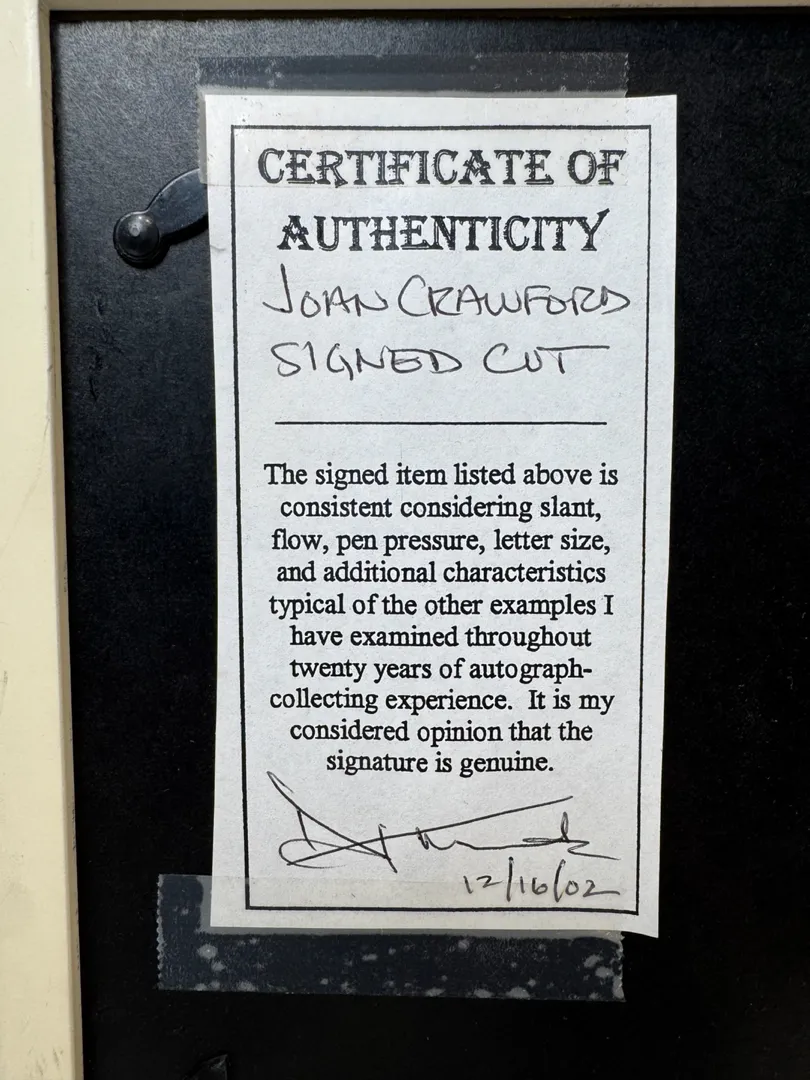 CERTIFICATE OF
AUTHENTICITY
JOAN CRAWFORD
SIGNED CUT
The signed item listed above is
consistent considering slant,
flow, pen pressure, letter size,
and additional characteristics
typical of the other examples I
have examined throughout
twenty years of autograph-
collecting experience. It is my
considered opinion that the
signature is genuine.
12/16/02